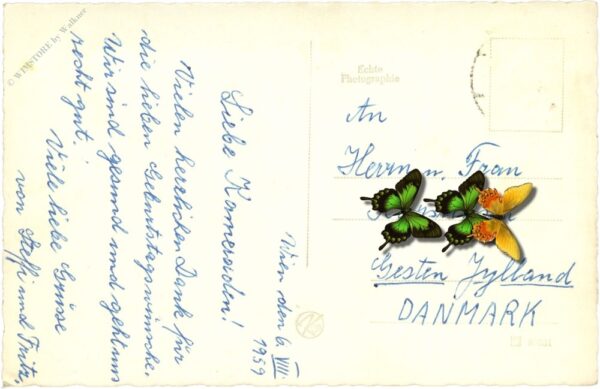 © WPNSTORE by Walkner
Wien den 6. VIII.
1959
Liebe Kameraden!
Vielen herzlichen Dank für
die lieben Geburtstagswünsche.
Wir sind gesund und geht uns
recht gut.
Viele liebe Grüsse
von Steffi und Fritz.
Echte
Photographie
An
Herrn u. Frau
Gesten Jylland
DANMARK